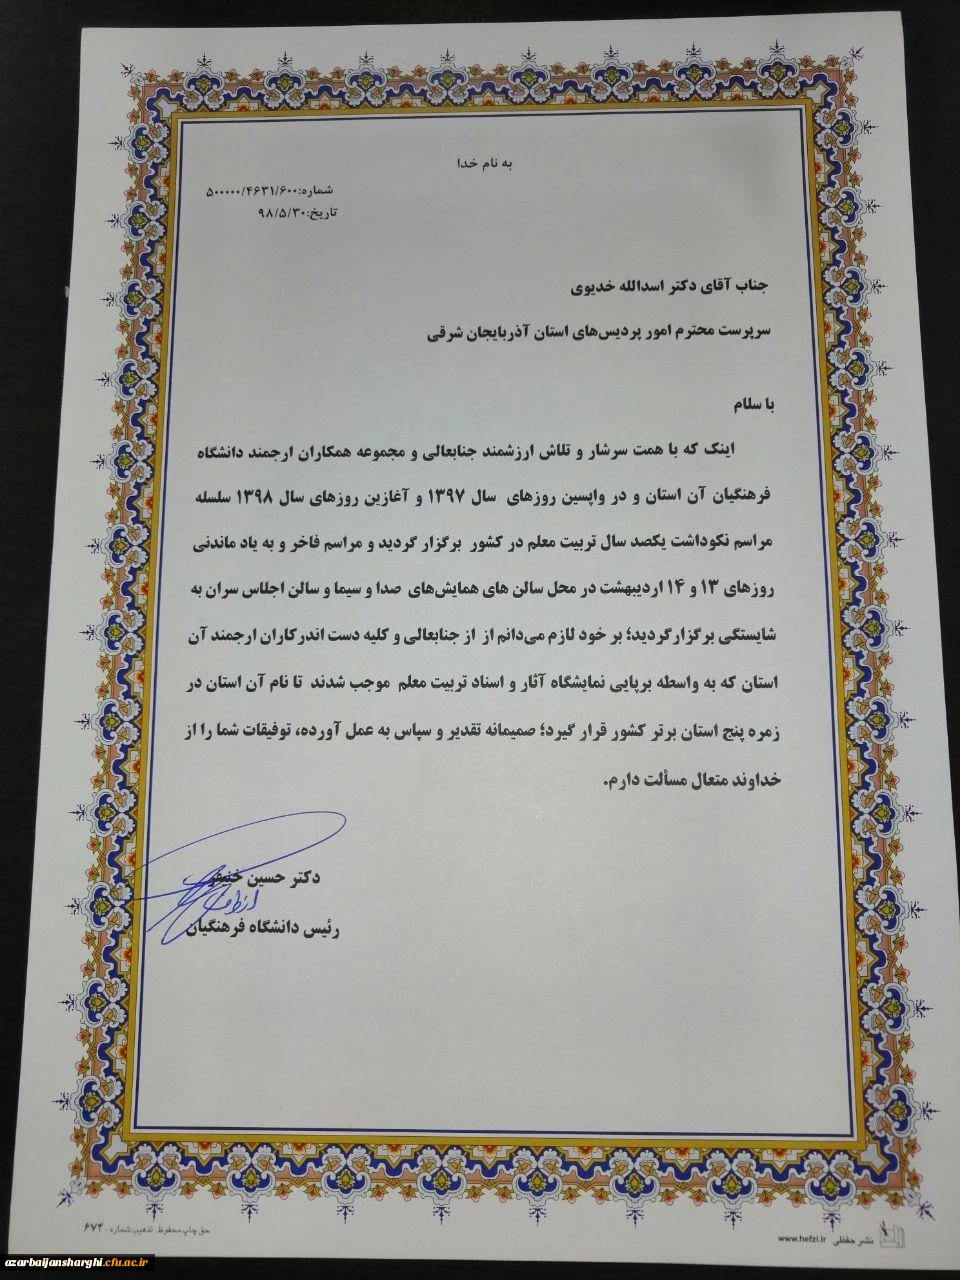 به نام خدا
شماره:۵۰۰۰۰۰/۴۶۳۱/۶۰۰
تاریخ:۹۸/۵/۳۰
جناب آقای دکتر اسدالله خدیوی
سرپرست محترم امور پردیس‌های استان آذربایجان شرقی
با سلام
اینک که با همت سرشار و تلاش ارزشمند جنابعالی و مجموعه همکاران ارجمند دانشگاه
فرهنگیان آن استان و در واپسین روزهای سال ۱۳۹۷ و آغازین روزهای سال ۱۳۹۸ سلسله
مراسم نکوداشت یکصد سال تربیت معلم در کشور برگزار گردید و مراسم فاخر و به یاد ماندنی
روزهای ۱۳ و ۱۴ اردیبهشت در محل سالن های همایش‌های صدا و سیما و سالن اجلاس سران به
شایستگی برگزار گردید؛ بر خود لازم می‌دانم از از جنابعالی و کلیه دست اندرکاران ارجمند آن
استان که به واسطه برپایی نمایشگاه آثار و اسناد تربیت معلم موجب شدند تا نام آن استان در
زمره پنج استان برتر کشور قرار گیرد؛ صمیمانه تقدیر و سپاس به عمل آورده، توفیقات شما را از
خداوند متعال مسألت دارم.
دکتر حسین خنیفر
رئیس دانشگاه فرهنگیان
حق چاپ محفوظ تذهیب شماره : ۶۷۴
نشر حفظی www.hefzi.ir
azarbaijansharghi.cfu.ac.ir